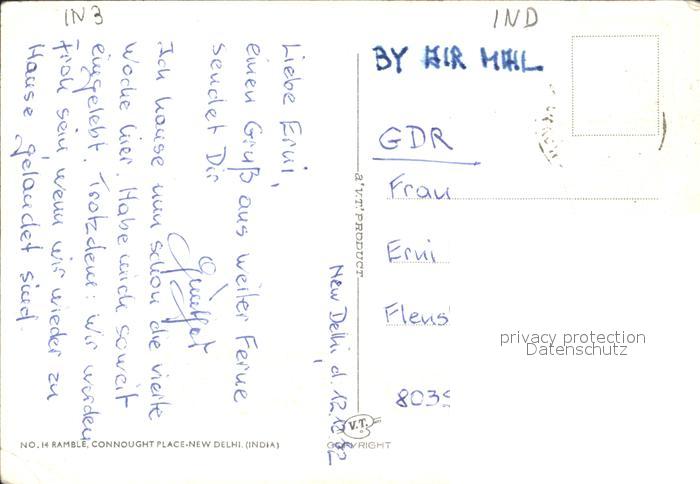 IN 3
IND
BY AIR MAIL
GDR
Frau
Erni
Flens
8039
privacy protection
Datenschutz
A 'V.T.' PRODUCT
New Delhi, d. 12.12.82
Liebe Erni,
einen Gruß aus weiter Ferne
sendet Dir
Günther
Ich hause nun schon die vierte
Woche hier. Habe mich soweit
eingelebt. Trotzdem: wir würden
froh sein, wenn wir wieder zu
Hause gelandet sind.
V.T.
COPYRIGHT
NO. 14 RAMBLE, CONNOUGHT PLACE-NEW DELHI. (INDIA)